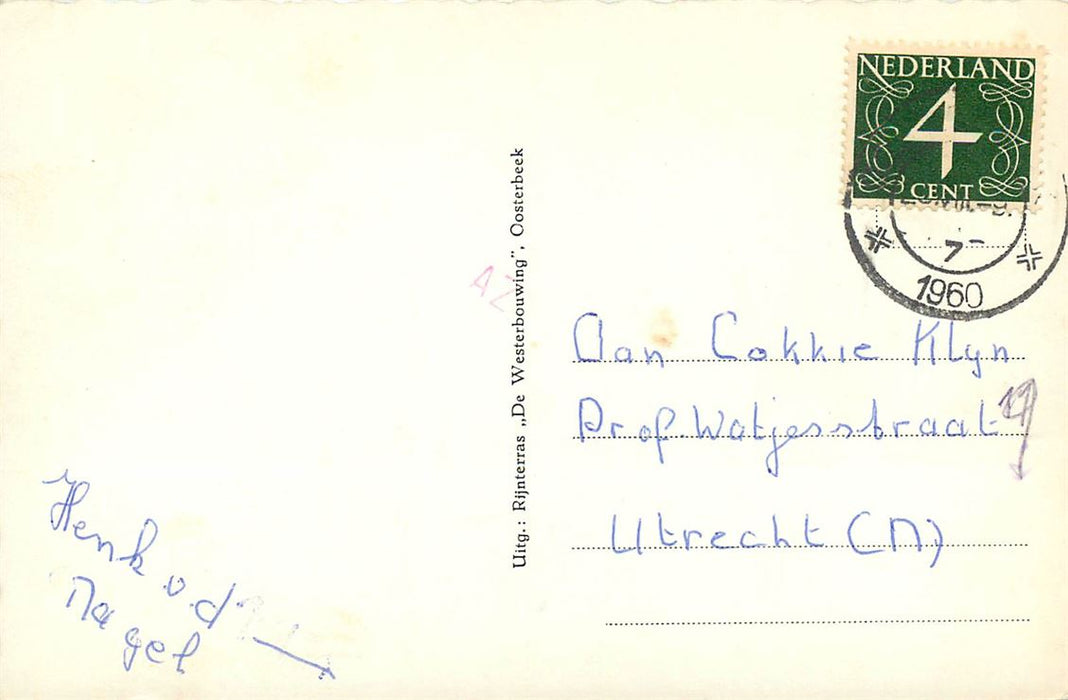 NEDERLAND
4
CENT
7
1960
Uitg.: Rijnterras „De Westerbouwing”, Oosterbeek
AZ
Aan Cokkie Klyn
Prof. Watjesstraat
Utrecht (N)
Henk v. d.
Nagel